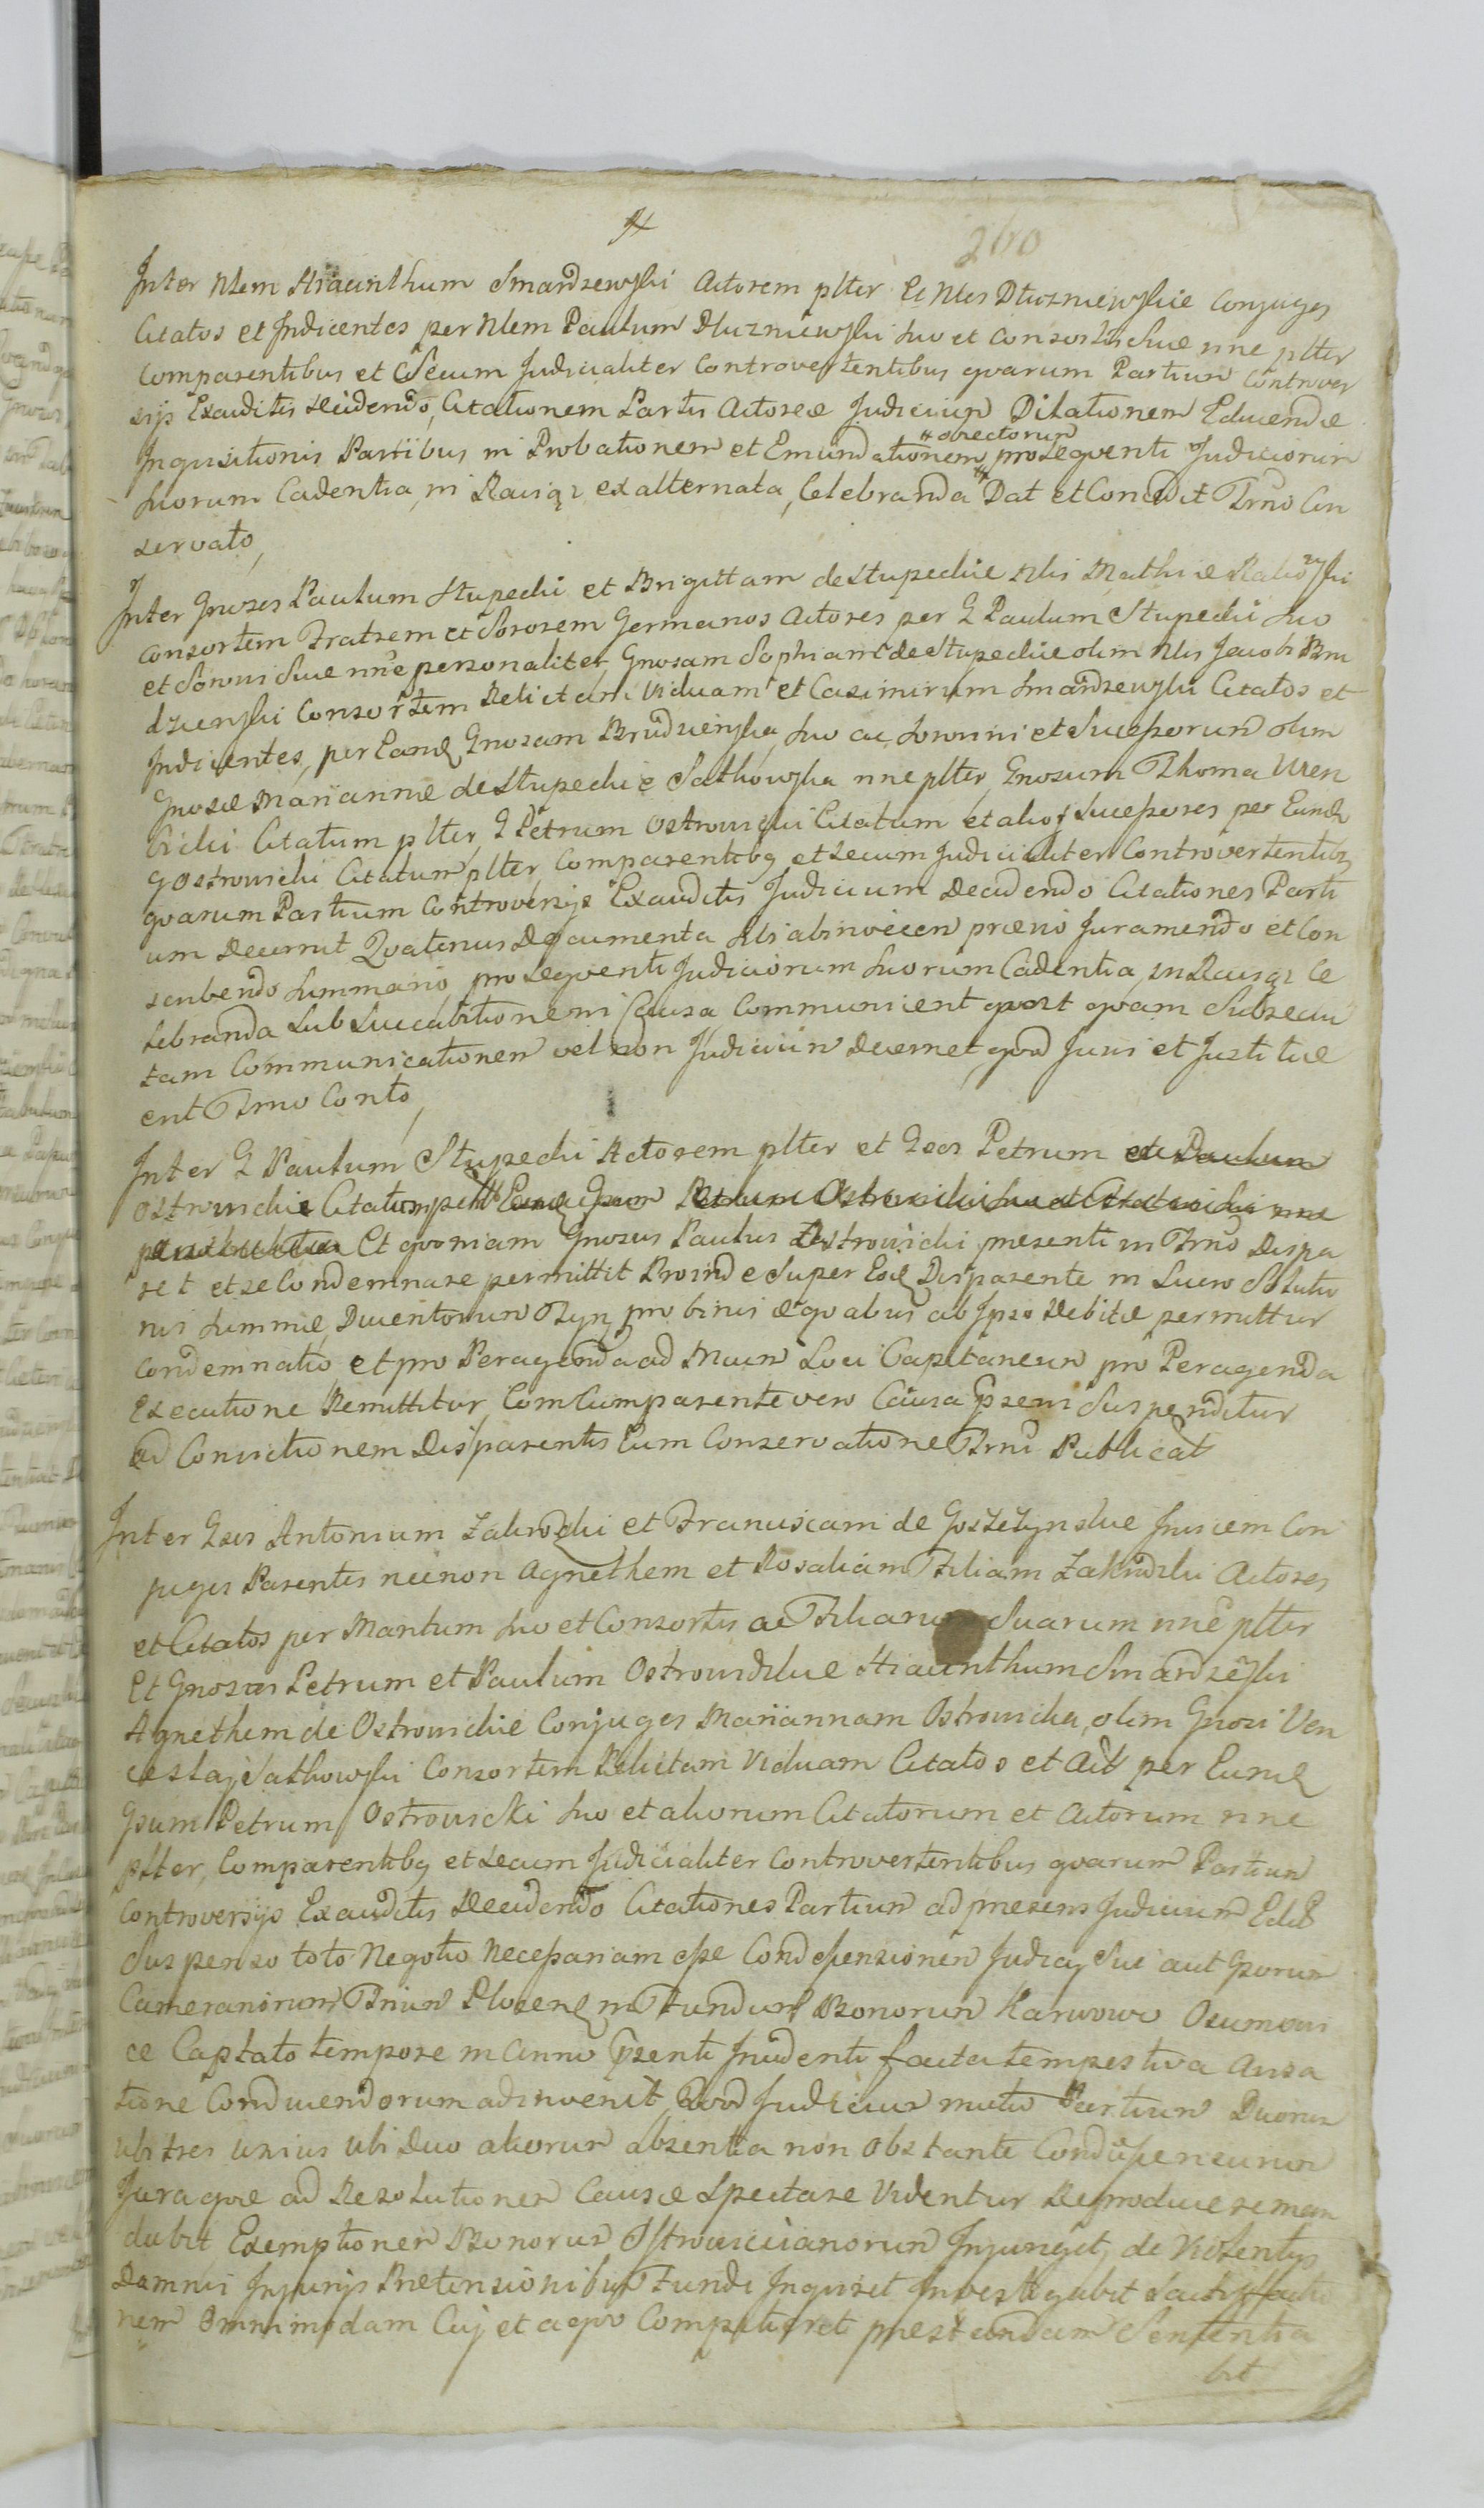 260
Inter Nlem Hiacinthum Smardzewski Actorem plter Et Nles Dłuzniewskie Conjuges
Citatos et Indicentes per Nlem Paulum Dłuzniewski suo et Consortis Suae nne plter
Comparentibus et Secum Judicialiter Controvertentibus qvarum Partium Controver
sijs Exauditis decidendo, Citationem Partis Actoreae Judicium Dilationem Educendae
Inqvisitionis Partibus in Probationem et Emundationem # objectorum pro Seqventi Judiciorum
suorum Cadentia, in Raciąz ex alternata, Celebranda # Dat et Concedit Trno Con
servato,
Inter Gnosos Paulum Stupecki et Brigittam de Stupeckie Nlis Mathiae
Consortem Fratrem et Sororem Germanos Actores per G Paulum Stupecki suo
et Sororis Suae nne personaliter, Gnosam Sophiam de Stupeckie olim Nlis Jacobi Bru
dzienski Consortem Relictam Viduam et Casimirum Smardzewski Citatos et
Indicentes, per Eandq Gnosam Brudzienska, suo ac Sororini et Succesorum olim
Gnosae Mariannae de Stupeckie Sathowska nne plter, Gnosum Thoma
Citatum plter, G Petrum Ostrowicki Citatum et alios Succesores per Eundq
G Ostrowicki Citatum plter Comparentibq et Secum Judicialiter Controvertentibq
qvarum Partium Controversijs Exauditis Judicium Decidendo Citationes Parti
um Decernit Qvatenus Documenta sibi abinvicem praevio Juramendo et Con
scribendo Summario, pro Seqventi Judiciorum suorum Cadentia, in Raciąz Ce
lebranda Sub Succubitione in Causa Communicent qvost qvam Subsecu
tam Communicationem vel non Judicium Decernet qvod Juris et Justitiae
erit Trno Conto,
Inter G Paulum Stupecki Actorem plter et Gsos Petrum et Paulum
Ostrowickie Citatum
Et qvoniam Gnosus Paulus Ostrowicki presenti in Trno Dispa
ret et se Condemnare permittit Proinde Super Eodq Disparente in Lucro Solutio
nis Summae Ducentorum Tyn, pro binis aeqvabus ab Ipso Debitae permittur
Condemnatio et pro Peragenda ad Mum Loci Capitaneum pro Peragenda
Executione Remittitur, Com Cumparente vero Causa Presens Suspenditur
ad Convictionem Disparentis Cum Conservatione Trni Publicat
Inter Gsos Antonium Zakrzdki et Franciscam de Goszczynskie Invicem Con
juges Parentes necnon Agnethem et Rosaliam Filiam Zakrzdki Actores
et Citatos per Maritum suo et Consortis ac Filiarum Suarum nne plter
Et Gnosos Petrum et Paulum Ostrowickie Hiacinthum Smardzewski
Agnethem de Ostrowickie Conjuges Mariannam Ostrowicka, olim Gnosi Ven
ceslaj Sathowski Consortem Relictam Viduam Citatos et Act per Eundq
Gsum Petrum Ostrowicki suo et aliorum Citatorum et Actorum nne
plter, Comparentibq et Secum Judicialiter Controvertentibus qvarum Partium
Controversijs Exauditis Decidendo Citationes Partium ad presens Judicium Edit
Suspenso toto Negotio Necessariam esse Condesensionem Judicij Sui aut Gsorum
Camerariorum Trium Plocenq in Fundum Bonorum Karwowo Osumowi
ce Captato tempore in Anno Psenti Incidenti facta tempestiva Avisa
tione Conducendorum adinvenit, Qvod Judicium mutuo Partium Duorum
ubi tres unius ubi Duo aliorum absentia non Obstante Condescensurum
Jura qvae ad Resolutionem Causae Spectare Videntur Reproducere man
dabit Exemptionem Bonorum Ostrowiccianorum Injunget, de Violentijs
Damnis Injurijs Praetensionibus Fundi Inqviret Investigabit Satisfactio
nem Omnimodam Cuj et a qvo Competieret prestandam Sententia
bit